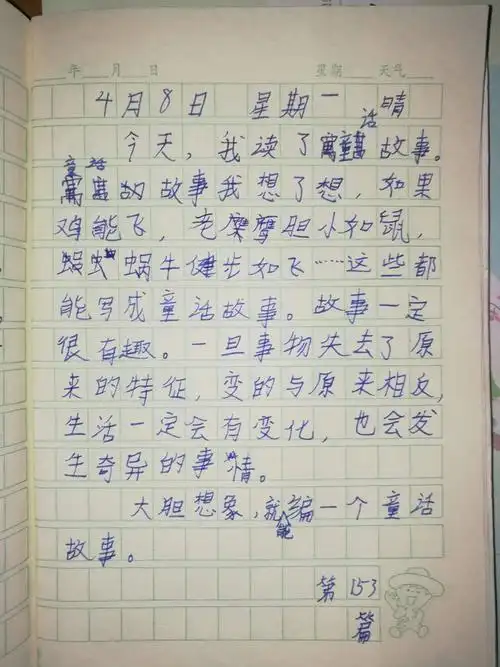 年 月 日 星期 天气
4月8日 星期一 晴
今天，我读了童话故事。
童话故故事我想了想，如果
鸡能飞，老鹰胆小如鼠，
蜗牛健步如飞……这些都
能写成童话故事。故事一定
很有趣。一旦事物失去了原
来的特征，变的与原来相反，
生活一定会有变化，也会发
生奇异的事情。
大胆想象，就能编一个童话
故事。
第153
篇